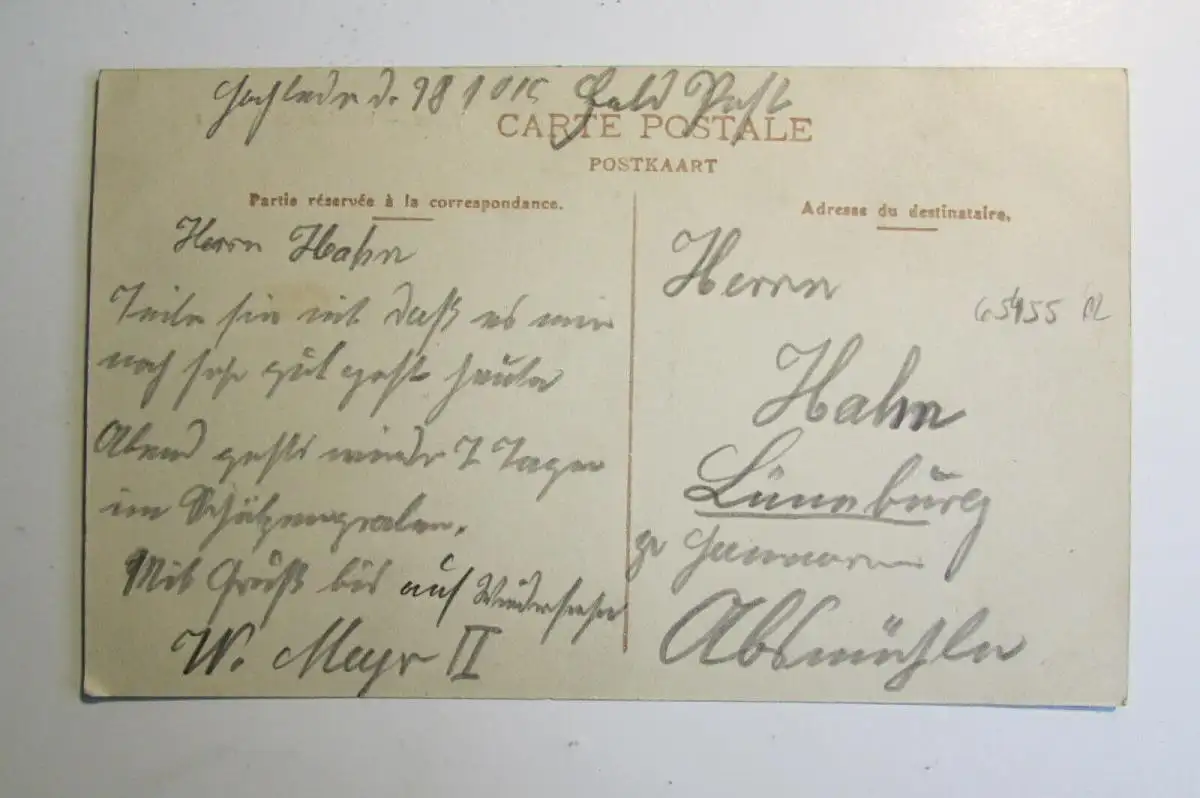 Hochlede d. 28 1 015 Feld Post
CARTE POSTALE
POSTKAART
Partie réservée à la correspondance.
Adresse du destinataire.
Herrn Hahn
Teile sie mit daß es mir
noch sehr gut geht heute
Abend gehts wieder 7 Tagen
im Schützengraben.
Mit Gruß bis auf Wiedersehn
W. Meyer II
Herrn
65455
Hahn
Lüneburg
Hannover
Absmühle